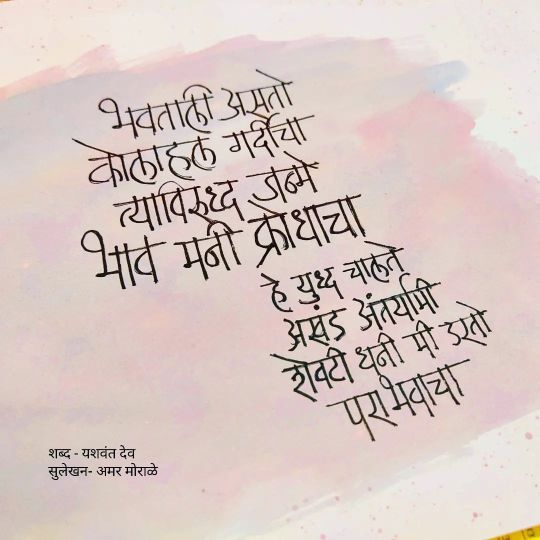 भवताली असतो
कोलाहल गर्दीचा
त्याविरुध्द जन्मे
भाव मनी क्रोधाचा
हे युध्द चालते
अखंड अंतर्यामी
शेवटी धनी मी ठरतो
पराभवाचा
शब्द - यशवंत देव
सुलेखन- अमर मोराळे